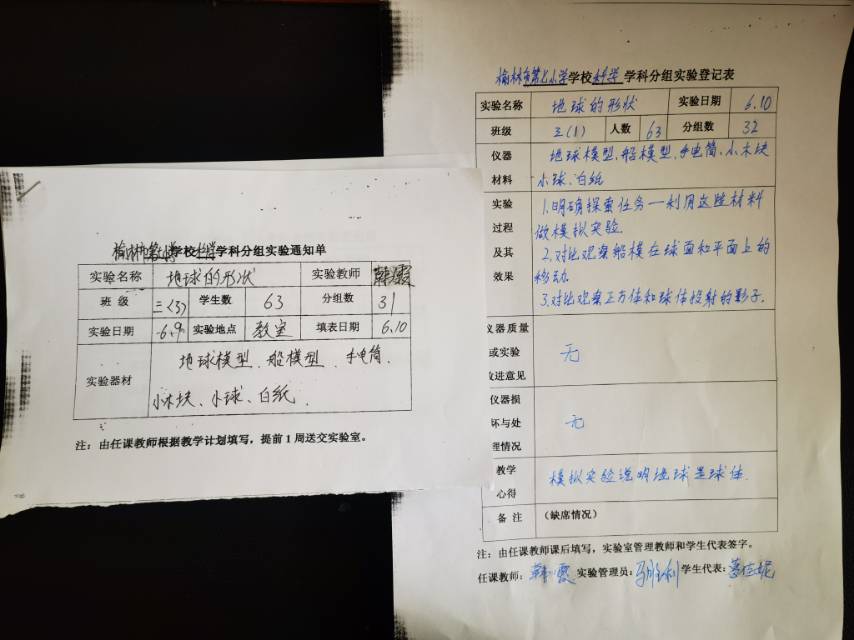 榆林市第七小学学校科学学科分组实验登记表
实验名称 地球的形状 实验日期 6.10
班级 三(1) 人数 63 分组数 32
仪器材料 地球模型、船模型、手电筒、小木块
小球、白纸
实验过程及其效果 1.明确探索任务一利用这些材料
做模拟实验.
2.对比观察船模在球面和平面上的
移动.
3.对比观察正方体和球体投射的影子.
仪器质量或实验改进意见 无
仪器损坏与处理情况 无
教学心得 模拟实验说明地球是球体.
备注 (缺席情况)
注:由任课教师课后填写,实验室管理教师和学生代表签字。
任课教师: 韩霞 实验管理员: 马胜利 学生代表:
学校科学学科分组实验通知单
实验名称 地球的形状 实验教师 韩霞
班级 三(3) 学生数 63 分组数 31
实验日期 6.9 实验地点 教室 填表日期 6.10
实验器材 地球模型、船模型、手电筒、
小木块、小球、白纸.
注:由任课教师根据教学计划填写,提前1周送交实验室。